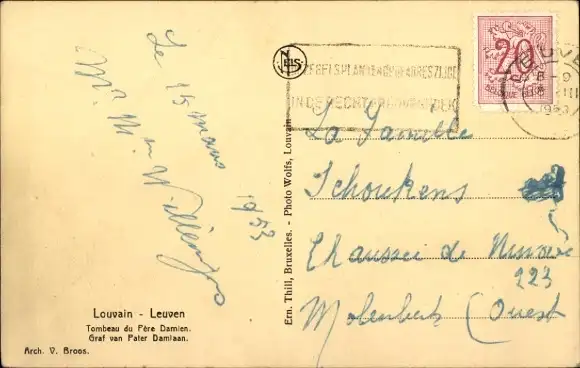 Le 15 mars 1953
Mr Mme Willems
Louvain - Leuven
Tombeau du Père Damien.
Graf van Pater Damiaan.
Arch. V. Broos.
Ern. Thill, Bruxelles. - Photo Wolfs, Louvain
NELS
IN DE RECHTER
20
8-9
III
1953
La Famille
Schoukens
Chaussée de Ninove
223
Molenbeek Ouest